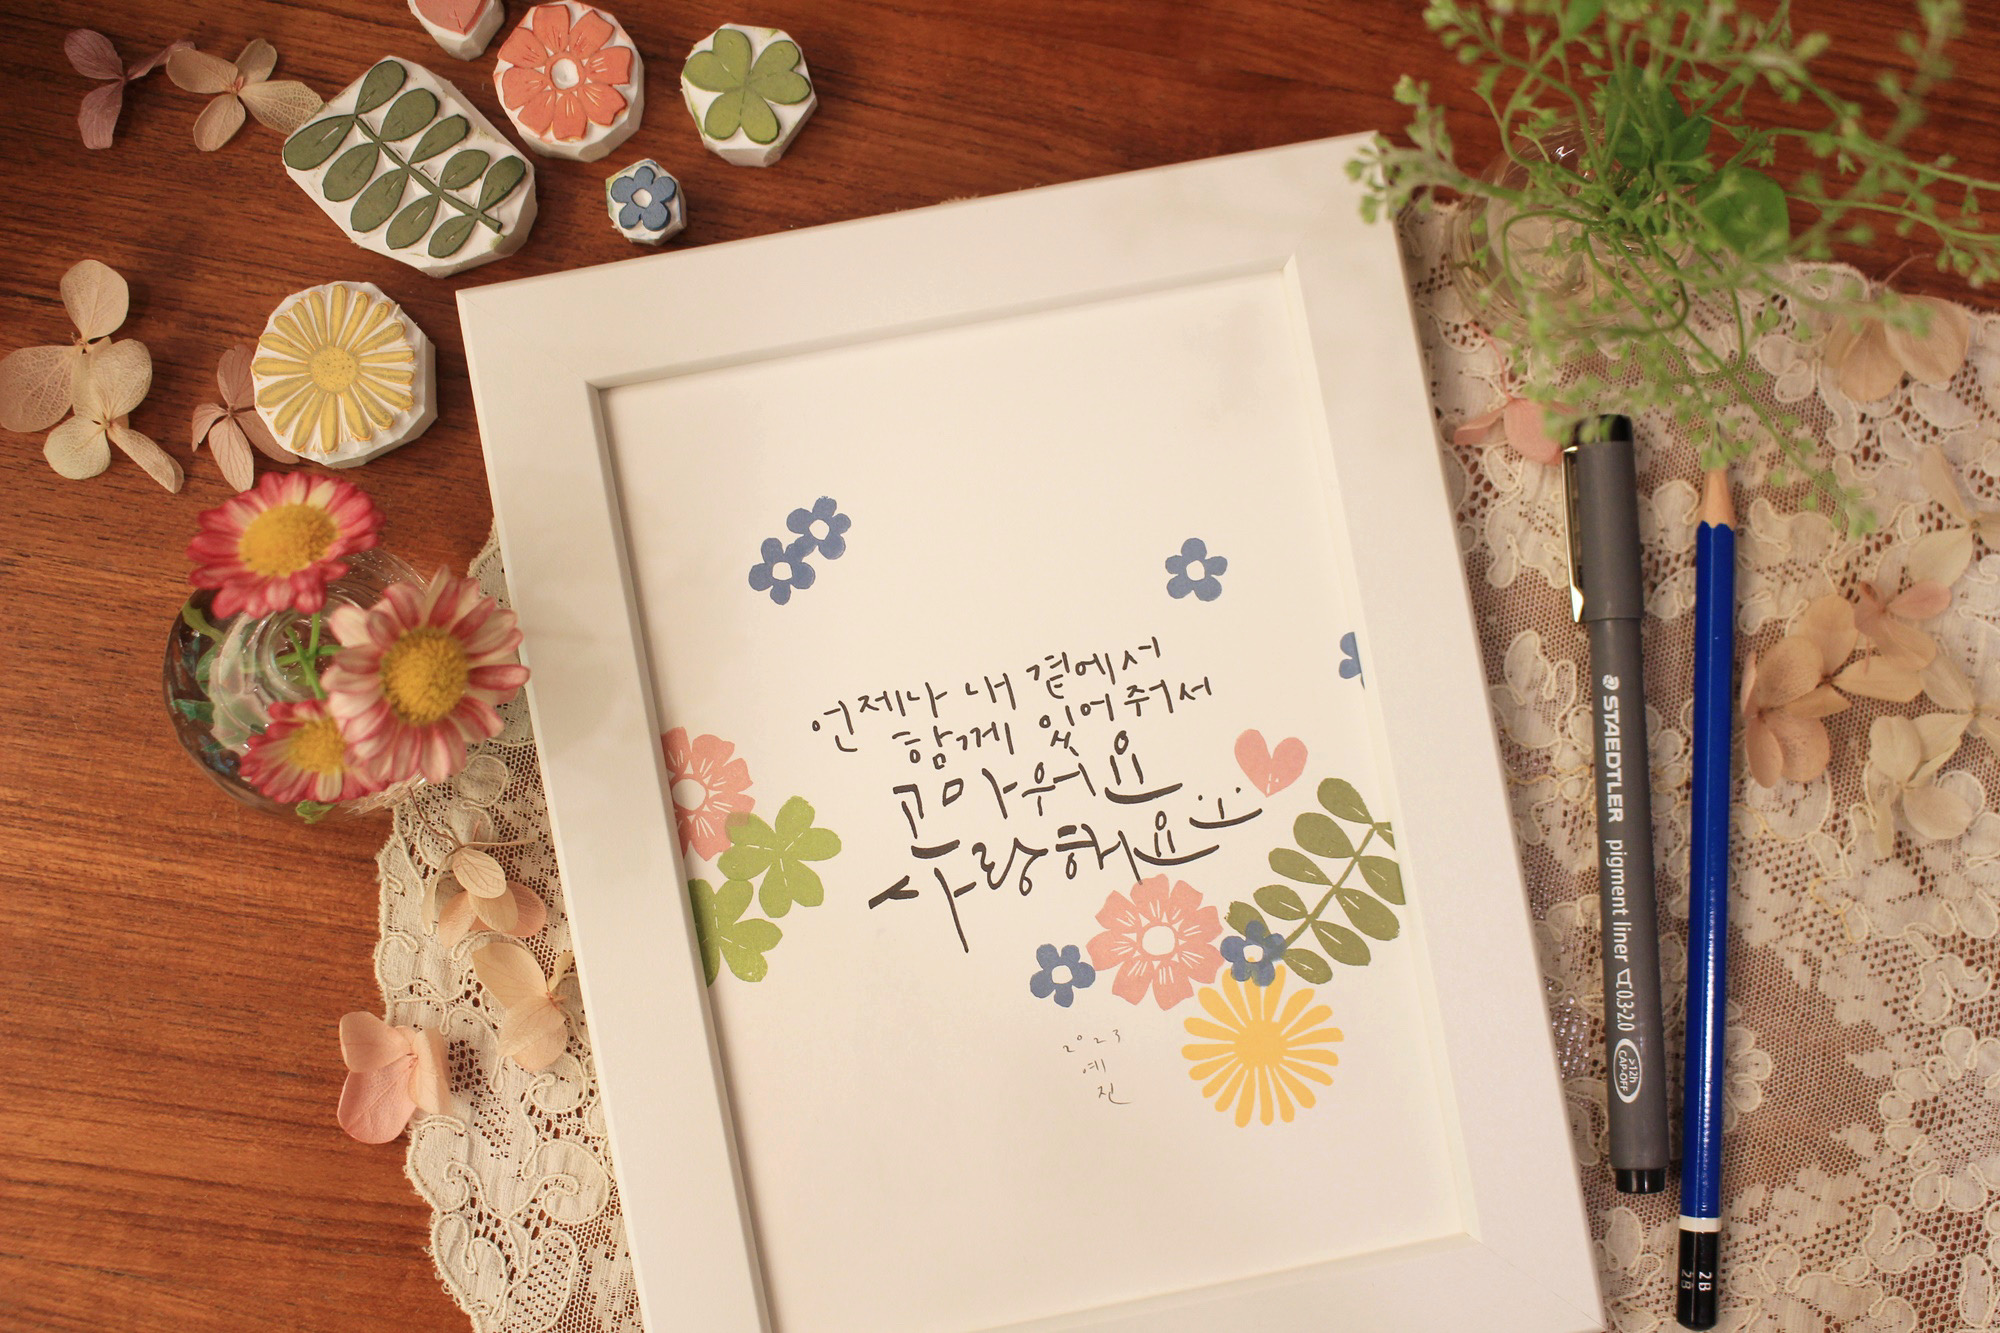 언제나 내 곁에서
함께 있어줘서
고마워요
사랑해요
2023
예
진
STAEDTLER pigment liner 0.3-2.0
>12h
CAP-OFF
2B
2B